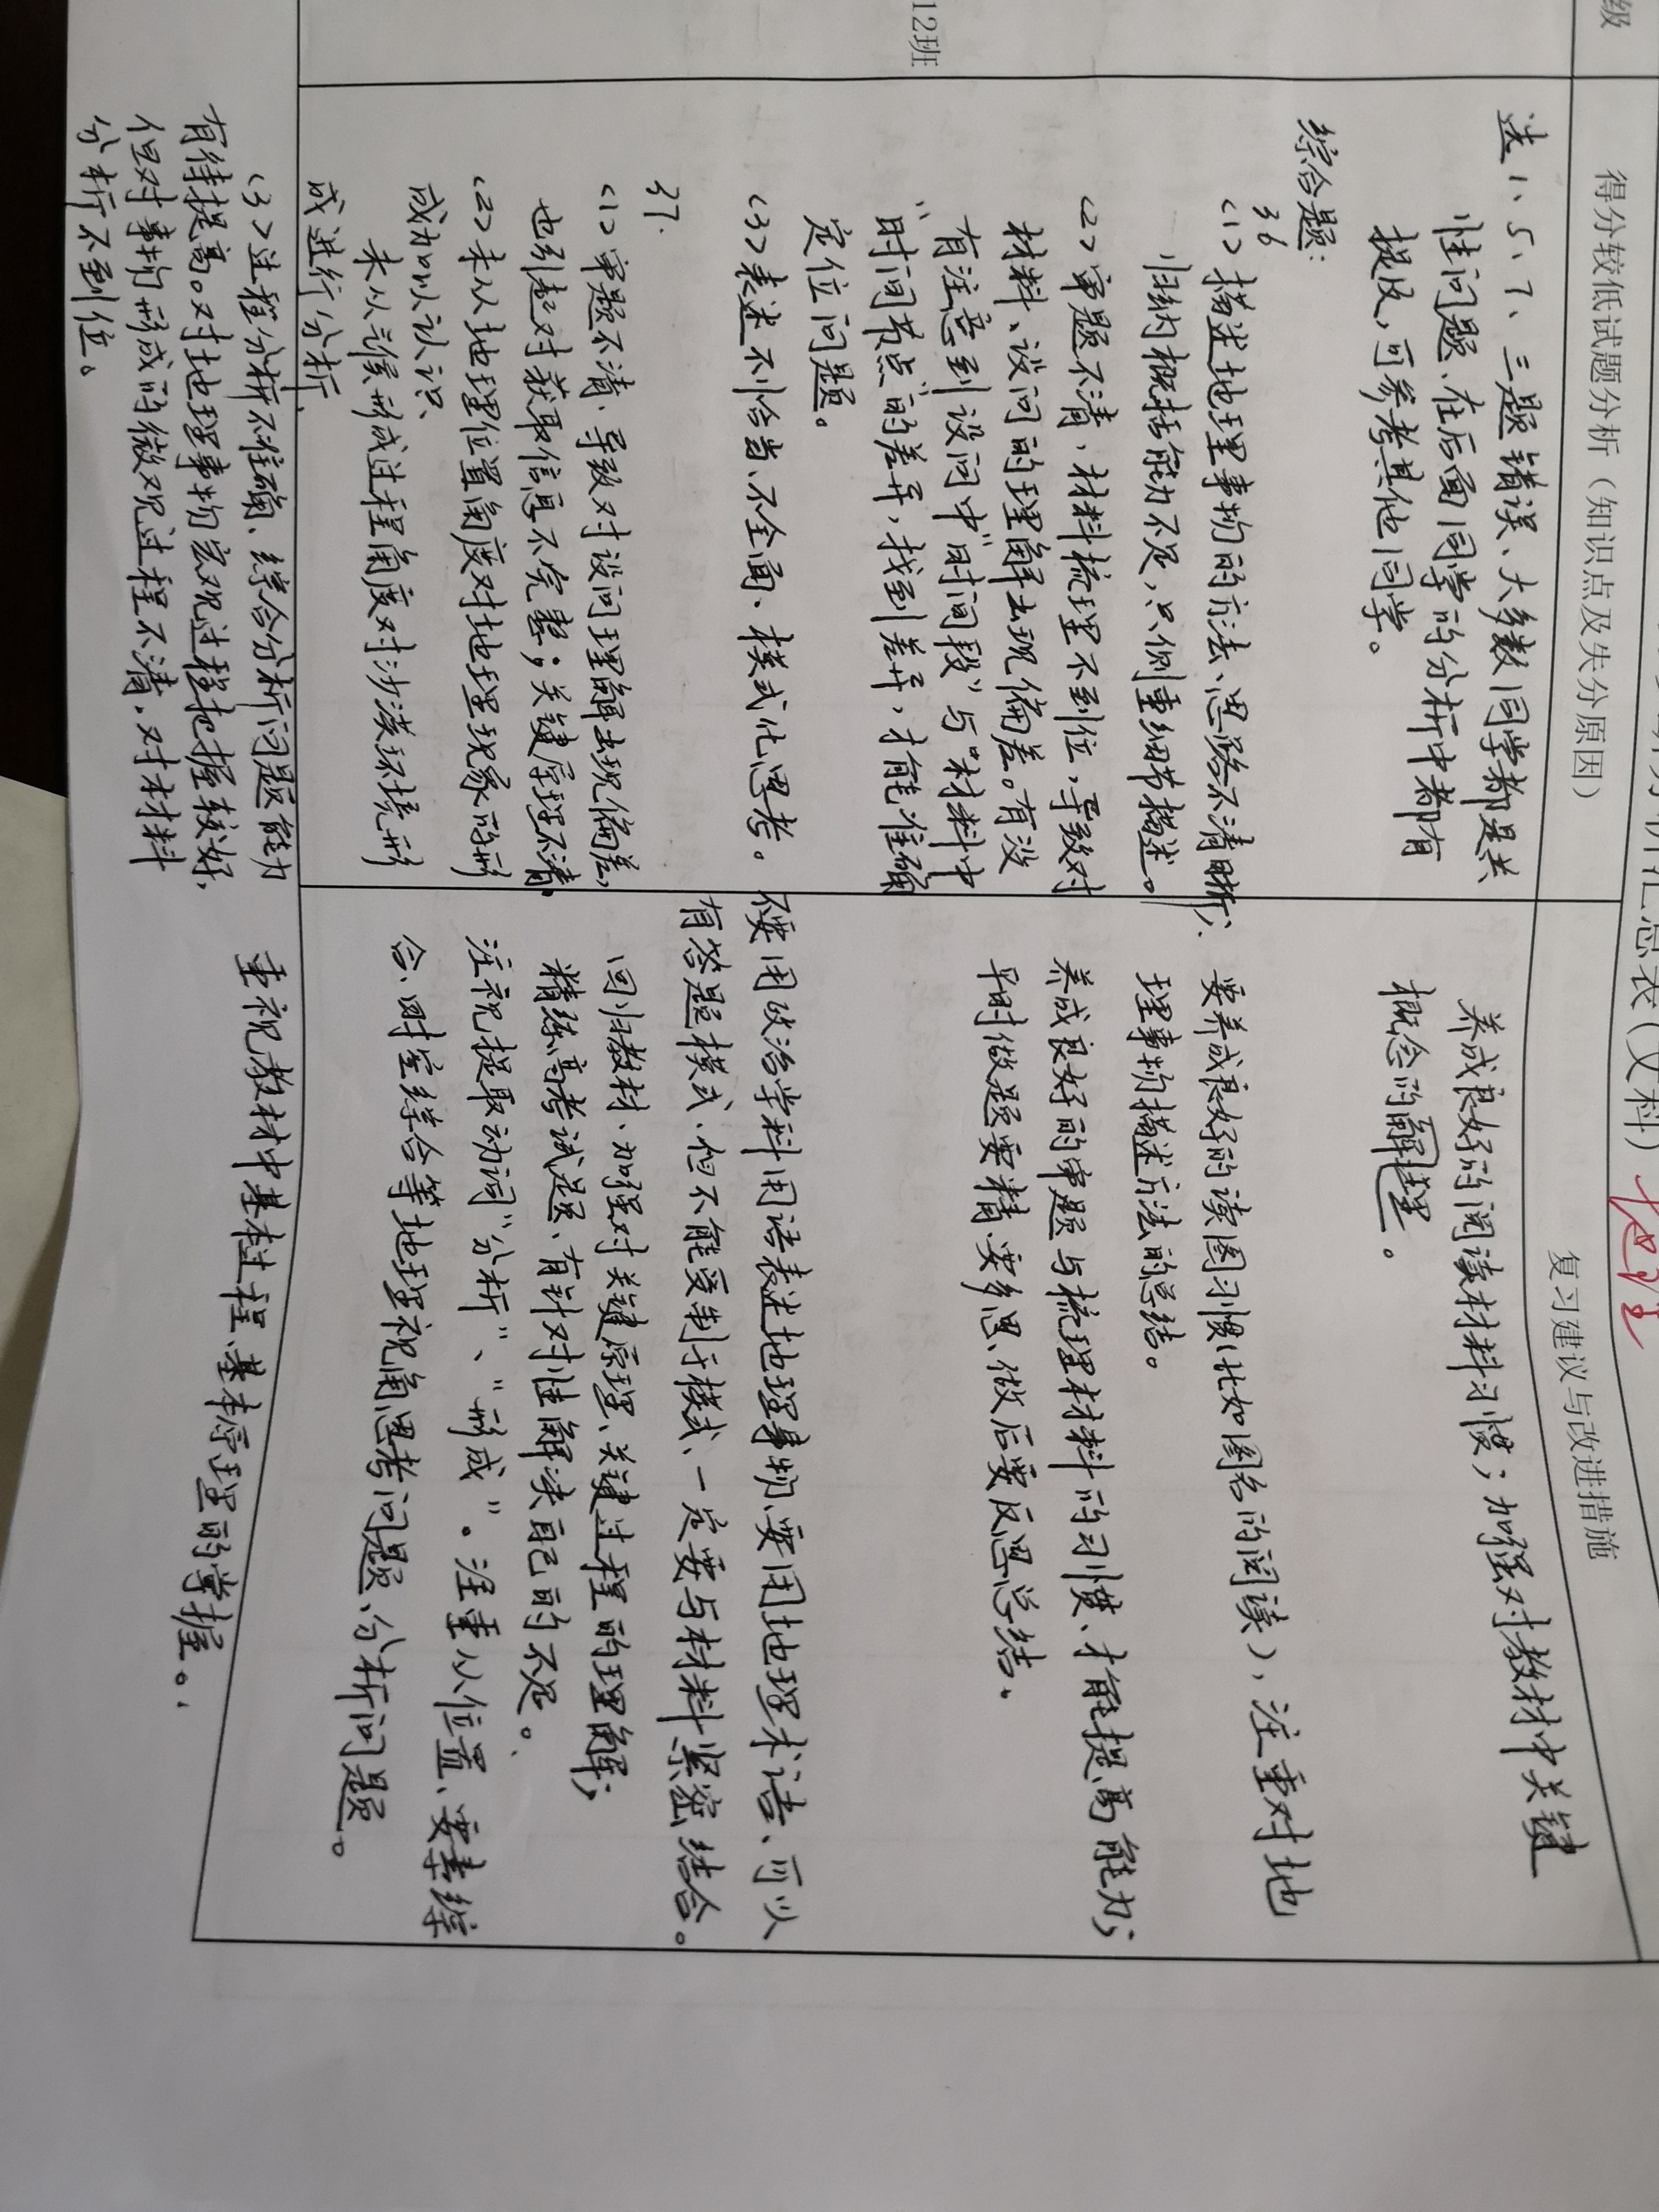 析汇总表（文科） 地理
级
得分较低试题分析（知识点及失分原因）
复习建议与改进措施
12班
选1、5、7、三题错误、大多数同学都是共
性问题、在后面同学的分析中都有
提及，可参考其他同学。
综合题：
36
(1) 描述地理事物的方法、思路不清晰；
归纳概括能力不足，只侧重细节描述。
(2) 审题不清，材料梳理不到位，导致对
材料、设问的理解出现偏差。有没
有注意到设问中"时间段"与"材料中
"时间节点"的差异，找到差异，才能准确
定位问题。
(3) 表述不恰当、不全面、模式化思考。
37.
(1) 审题不清、导致对设问理解出现偏差，
也引起对获取信息不完整；关键原理不清，
(2) 未从地理位置角度对地理现象的形
成加以认识
未从气候形成过程角度对沙漠环境形
成进行分析，
(3) 过程分析不准确、综合分析问题能力
有待提高。对地理事物宏观过程把握较好，
但对事物形成的微观过程不清，对材料
分析不到位。
养成良好的阅读材料习惯；加强对教材中关键
概念的解理。
要养成良好的读图习惯（比如图名的阅读），注重对地
理事物描述方法的总结。
养成良好的审题与梳理材料的习惯、才能提高能力；
平时做题要精、要多思、做后要反思总结。
不要用政治学科用语表述地理事物、要用地理术语、可以
有答题模式、但不能受制于模式、一定要与材料紧密结合。
回归教材、加强对关键原理、关键过程的理解；
精练高考试题、有针对性解决自己的不足。
注视提取动词"分析"、"形成"。注重从位置、要素综
合、时空综合等地理视角思考问题、分析问题。
重视教材中基本过程、基本原理的掌握。